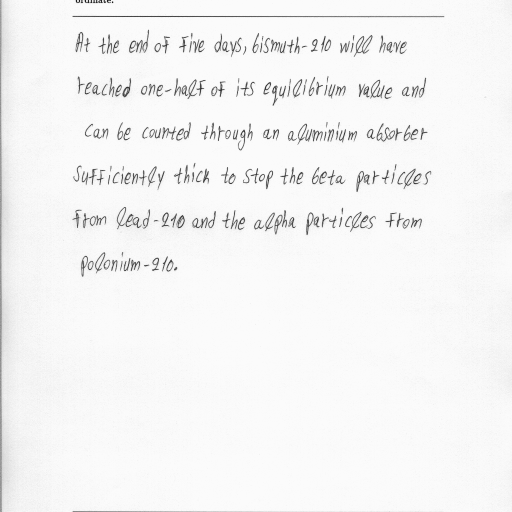 ordinate.
At the end of five days, bismuth-210 will have
reached one-half of its equilibrium value and
can be counted through an aluminium absorber
sufficiently thick to stop the beta particles
from lead-210 and the alpha particles from
polonium-210.